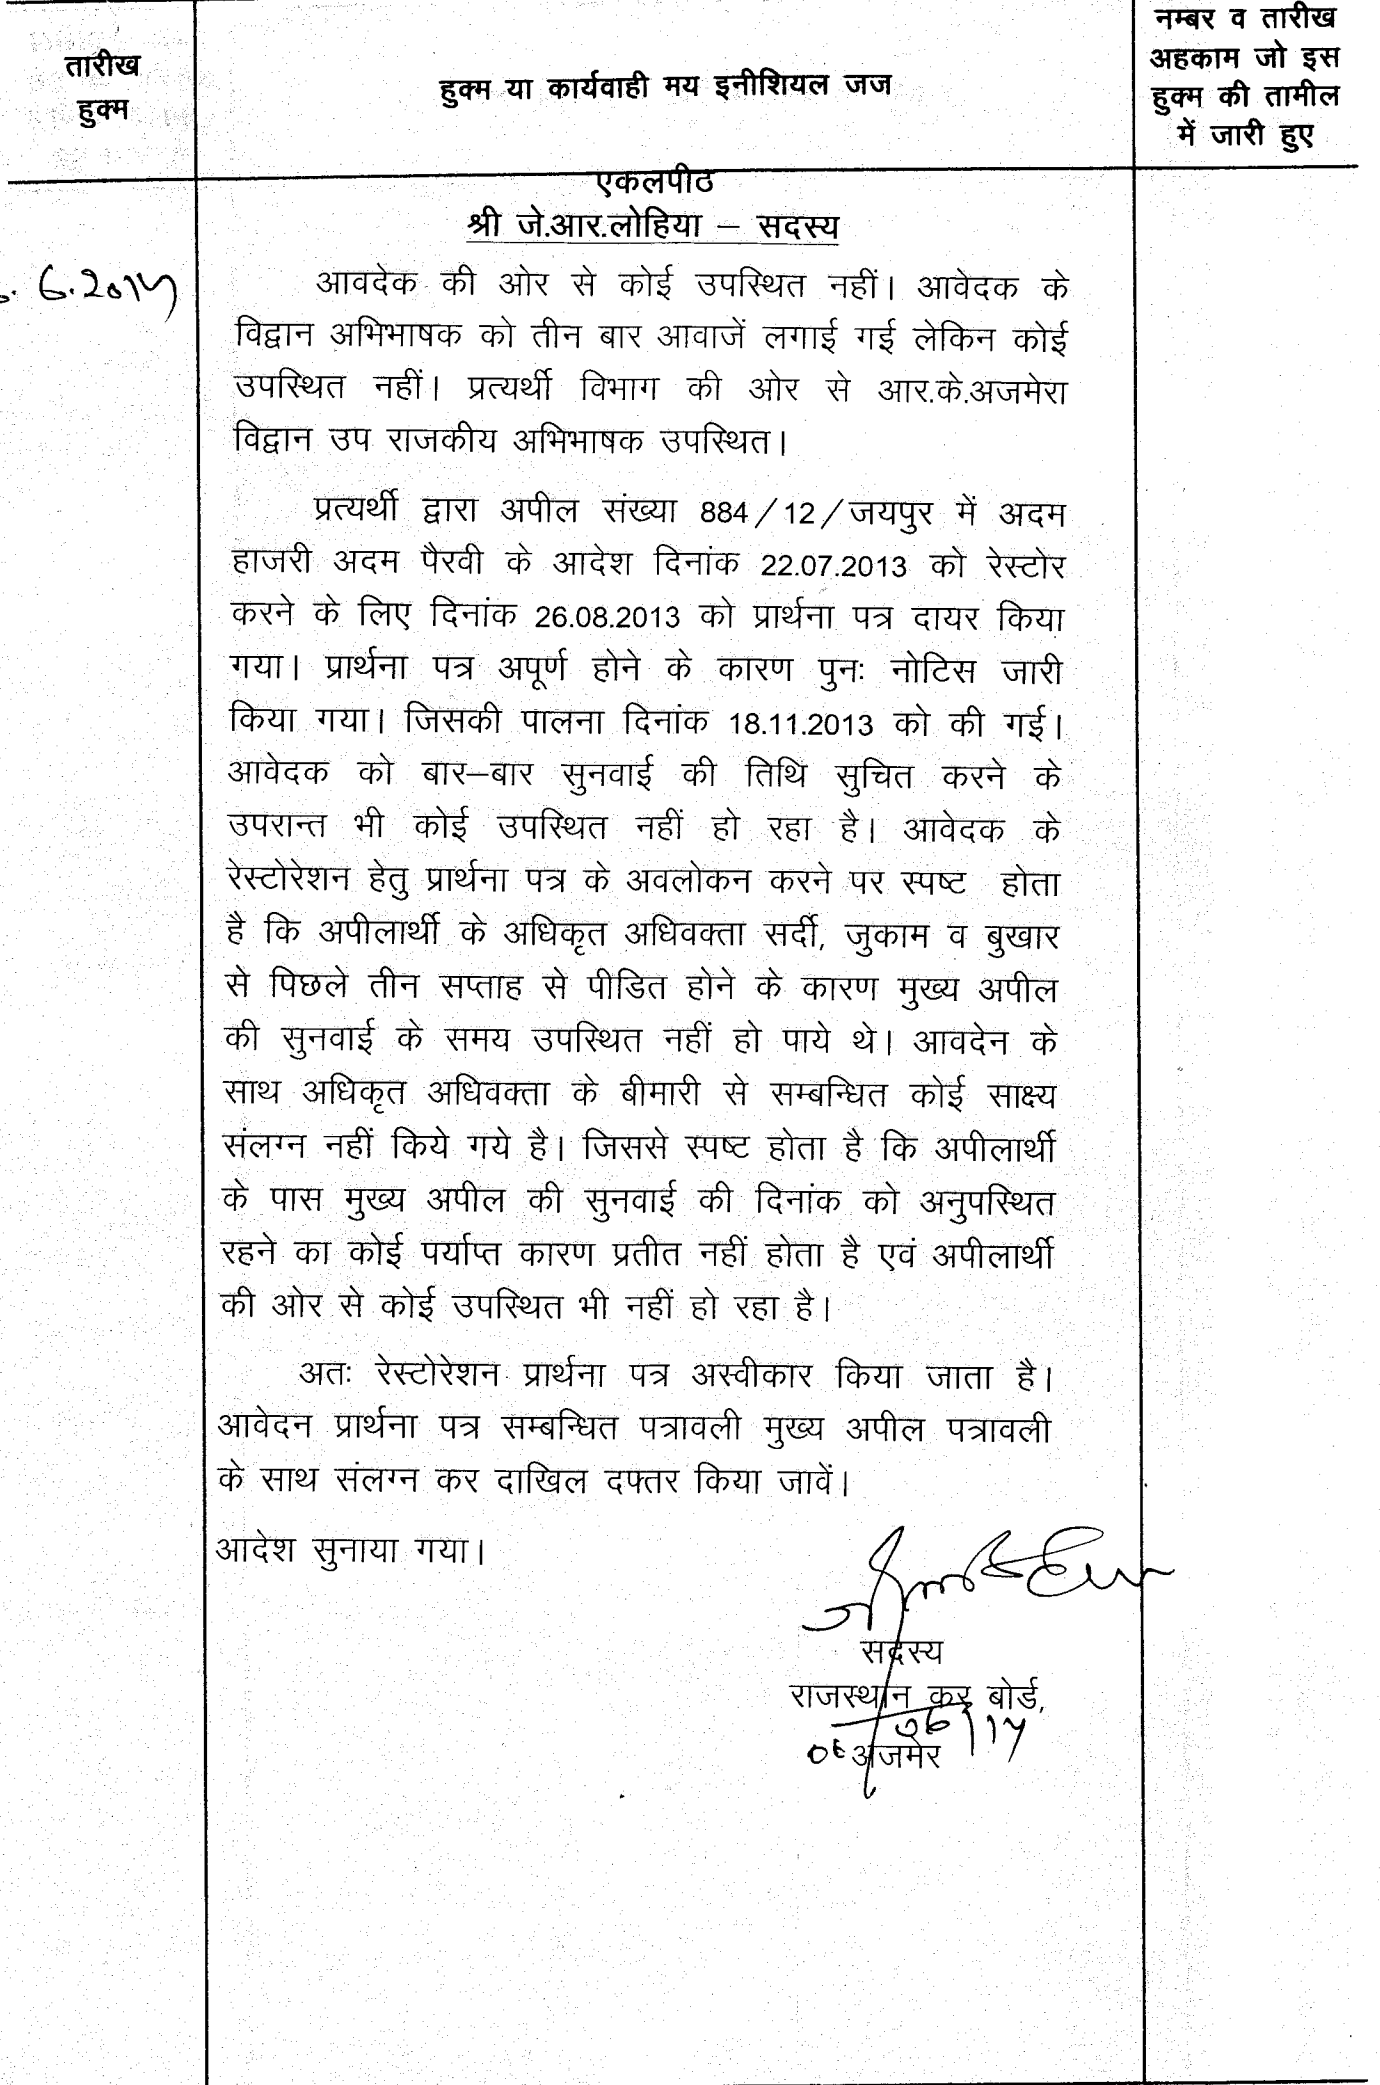 तारीख
हुक्म
हुक्म या कार्यवाही मय इनीशियल जज
नम्बर व तारीख
अहकाम जो इस
हुक्म की तामील
में जारी हुए
एकलपीठ
श्री जे.आर.लोहिया – सदस्य
6.2014
आवदेक की ओर से कोई उपस्थित नहीं। आवेदक के
विद्वान अभिभाषक को तीन बार आवाजें लगाई गई लेकिन कोई
उपस्थित नहीं। प्रत्यर्थी विभाग की ओर से आर.के.अजमेरा
विद्वान उप राजकीय अभिभाषक उपस्थित।
प्रत्यर्थी द्वारा अपील संख्या 884/12/जयपुर में अदम
हाजरी अदम पैरवी के आदेश दिनांक 22.07.2013 को रेस्टोर
करने के लिए दिनांक 26.08.2013 को प्रार्थना पत्र दायर किया
गया। प्रार्थना पत्र अपूर्ण होने के कारण पुनः नोटिस जारी
किया गया। जिसकी पालना दिनांक 18.11.2013 को की गई।
आवेदक को बार–बार सुनवाई की तिथि सुचित करने के
उपरान्त भी कोई उपस्थित नहीं हो रहा है। आवेदक के
रेस्टोरेशन हेतु प्रार्थना पत्र के अवलोकन करने पर स्पष्ट होता
है कि अपीलार्थी के अधिकृत अधिवक्ता सर्दी, जुकाम व बुखार
से पिछले तीन सप्ताह से पीडित होने के कारण मुख्य अपील
की सुनवाई के समय उपस्थित नहीं हो पाये थे। आवदेन के
साथ अधिकृत अधिवक्ता के बीमारी से सम्बन्धित कोई साक्ष्य
संलग्न नहीं किये गये है। जिससे स्पष्ट होता है कि अपीलार्थी
के पास मुख्य अपील की सुनवाई की दिनांक को अनुपस्थित
रहने का कोई पर्याप्त कारण प्रतीत नहीं होता है एवं अपीलार्थी
की ओर से कोई उपस्थित भी नहीं हो रहा है।
अतः रेस्टोरेशन प्रार्थना पत्र अस्वीकार किया जाता है।
आवेदन प्रार्थना पत्र सम्बन्धित पत्रावली मुख्य अपील पत्रावली
के साथ संलग्न कर दाखिल दफ्तर किया जावें।
आदेश सुनाया गया।
सदस्य
राजस्थान कर बोर्ड,
अजमेर